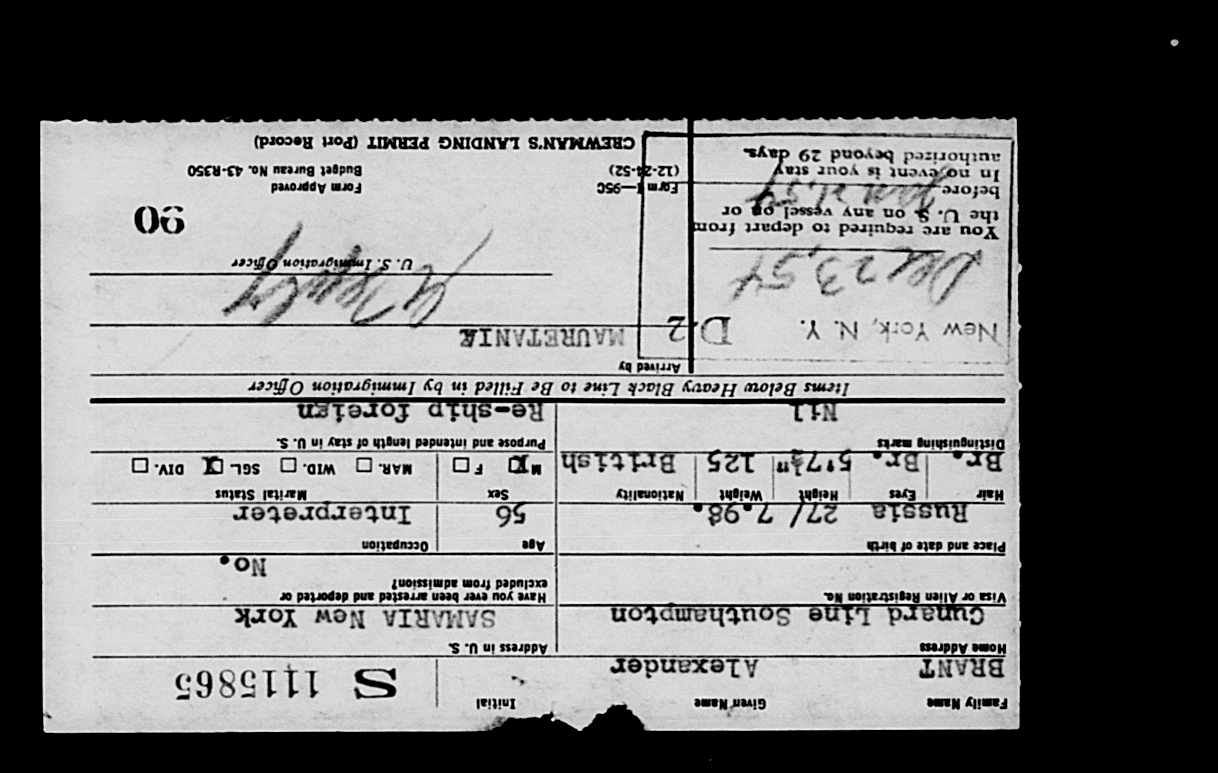 Family Name Given Name Initial
BRANT Alexander S 1115865
Home Address Address in U. S.
Cunard Line Southampton SAMARIA New York
Visa or Alien Registration No. Have you ever been arrested and deported or
excluded from admission?
No.
Place and date of birth Age Occupation
Russia 27/ 7.98. 56 Interpreter
Hair Eyes Height Weight Nationality Sex Marital Status
Br. Br. 5'7½" 125 British M F MAR. WID. SGL. DIV.
Distinguishing marks Purpose and intended length of stay in U. S.
Nil Re-ship foreign
Items Below Heavy Black Line to Be Filled in by Immigration Officer
Arrived by
New York, N. Y. D-2 MAURETANIA
Dec 23, 54
U. S. Immigration Officer
You are required to depart from
the U. S. on any vessel on or
before Jan 21, 54
In no event is your stay
authorized beyond 29 days.
90
Form I—95C Form Approved
(12-24-52) Budget Bureau No. 43-R350
CREWMAN'S LANDING PERMIT (Port Record)